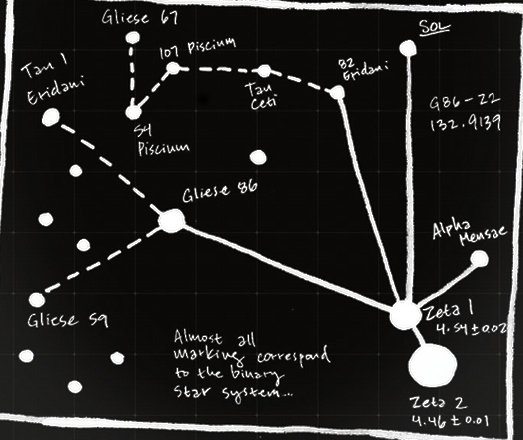 Gliese 67
Sol
107 Piscium
82
Eridani
Tau 1
Eridani
Tau
Ceti
G86-22
132.9139
54
Piscium
Gliese 86
Alpha
Mensae
Zeta 1
4.54 ± 0.02
Gliese 59
Almost all
marking correspond
to the binary
star system...
Zeta 2
4.46 ± 0.01